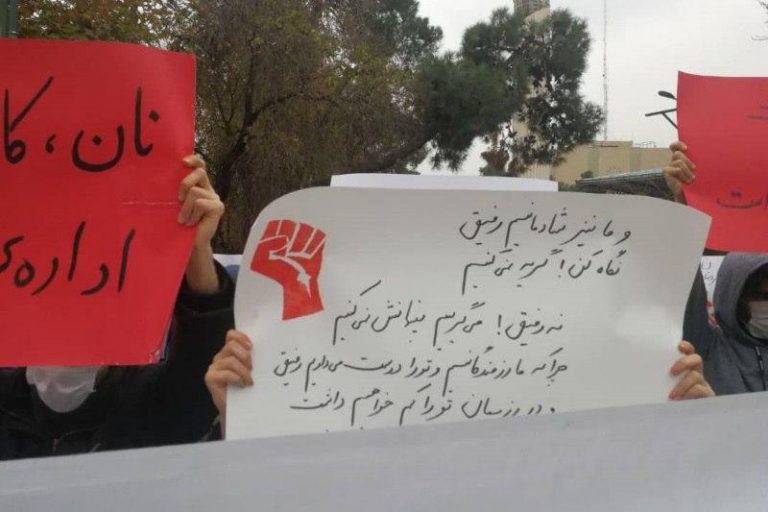 نان، کا
اداره‌ی
و ما نیز شادمانیم رفیق
نگاه کن! گریه نمی‌کنیم
نه رفیق! می‌گرییم پنهانش نمی‌کنیم
چرا که ما رزمندگانیم و تو را دوست می‌داریم رفیق
و در رزمان تو را کم خواهیم داشت